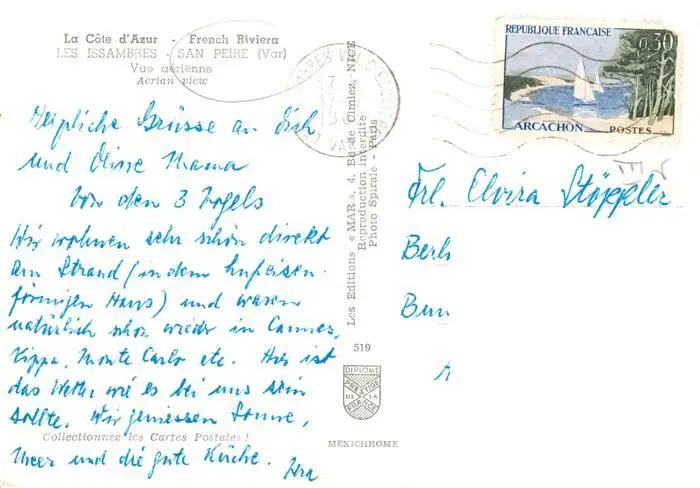 La Côte d'Azur - French Riviera
LES ISSAMBRES - SAN PEIRE (Var)
Vue aérienne
Aerian view
Herzliche Grüsse an dich
und Deine Mama
Von den 3 Vogels
Wir wohnen sehr schön direkt
am Strand (in dem hufeisen-
förmigen Haus) und waren
natürlich schon wieder in Cannes,
Nizza, Monte Carlo etc. Hier ist
das Wetter wie es bei uns sein
sollte. Wir geniessen Sonne,
Collectionnez les Cartes Postales !
Meer und die gute Küche.
VAR
Les Editions « MAR », 4, Bd de Cimiez, NICE
Reproduction interdite
Photo Spirale - Paris
519
DIPLOME
PRESTIGE
DE LA
FRANCE
MEXICHROME
REPUBLIQUE FRANÇAISE
0,30
ARCACHON
POSTES
Frl. Elvira Stöppler